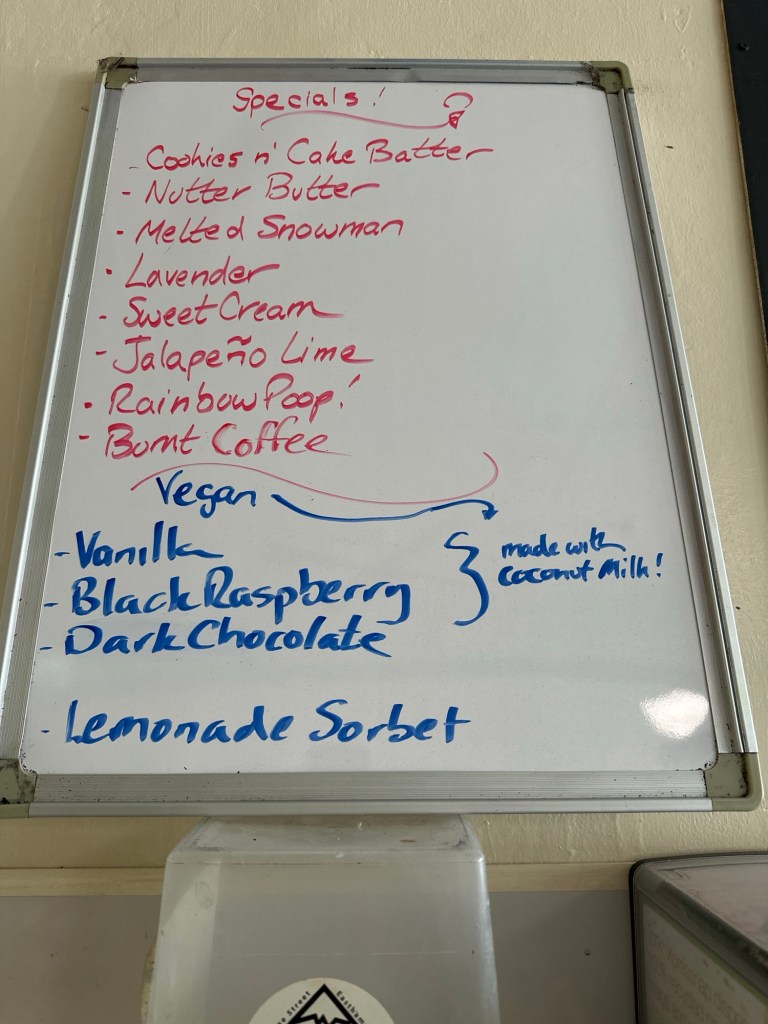 Specials!
- Cookies n' Cake Batter
- Nutter Butter
- Melted Snowman
- Lavender
- Sweet Cream
- Jalapeño Lime
- Rainbow Poop!
- Burnt Coffee
Vegan
- Vanilla
- Black Raspberry
- Dark Chocolate
made with
coconut milk!
- Lemonade Sorbet
Street
Eastham